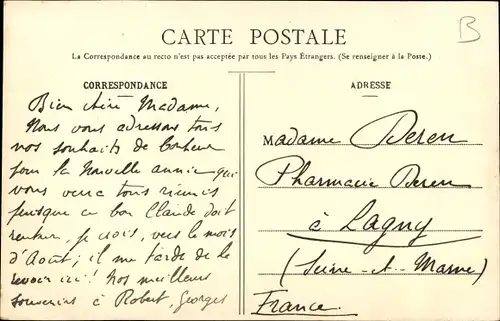 B
CARTE POSTALE
La Correspondance au recto n'est pas acceptée par tous les Pays Étrangers. (Se renseigner à la Poste.)
CORRESPONDANCE
Bien chère Madame,
Nous vous adressons tous
nos souhaits de bonheur
pour la Nouvelle année qui
vous verra tous réunis
puisque ce bon Claude doit
rentrer, je crois, vers le mois
d'Août; il me tarde de le
revoir ici! Nos meilleurs
souvenirs à Robert, Georges
ADRESSE
Madame Deren
Pharmacie Deren
à Lagny
(Seine-et-Marne)
France.